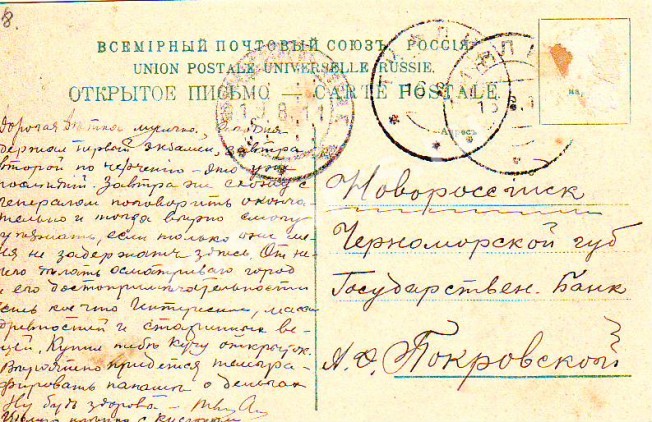 8.
ВСЕМІРНЫЙ ПОЧТОВЫЙ СОЮЗЪ. РОССІЯ.
UNION POSTALE UNIVERSELLE RUSSIE.
ОТКРЫТОЕ ПИСЬМО — CARTE POSTALE
Адресъ
Дорогая
держал первый экзамен, завтра
второй по черчению - это уже
последний. Завтра же схожу с
генералом поговорить оконча-
тельно и тогда верно смогу
уезжать, если только они ме-
ня не задержат здесь. От не-
чего делать осматриваю город
и его достопримечательности
есть кое что интересное, масса
древностей и старинных ве-
щей. Купил тебе кучу открыток.
Вероятно придется телегра-
фировать папаше о деньгах
Ну будь здорова -
Новороссийск
Черноморской губ
Государствен. Банк
А. Ф. Покровской